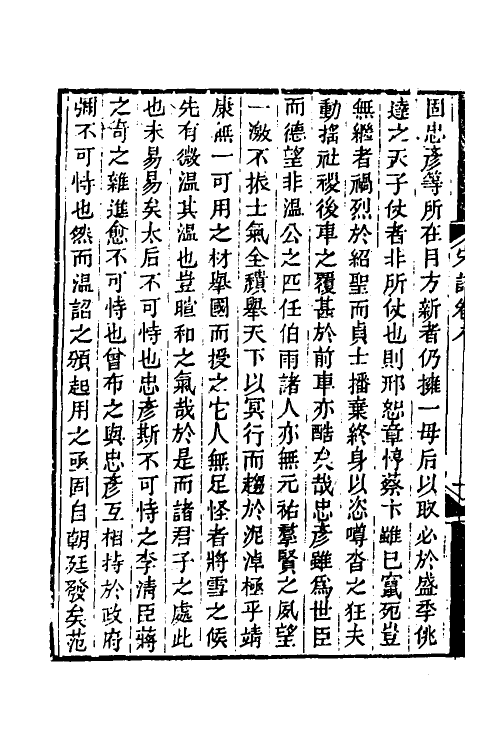 固忠彥等所在目方新者仍擁一母后以取必於盛季佻
達之天子仗者非所仗也則邢恕章惇蔡卞雖已竄死豈
無繼者禍烈於紹聖而貞士播棄終身以恣噂沓之狂夫
動搖社稷後車之覆甚於前車亦酷矣哉忠彥雖爲世臣
而德望非溫公之匹任伯雨諸人亦無元祐羣賢之夙望
一激不振士氣全穨舉天下以冥行而趨於泥淖極乎靖
康無一可用之材舉國而授之它人無足怪者將雪之候
先有微溫其溫也豈暄和之氣哉於是而諸君子之處此
也未易易矣太后不可恃也忠彥斯不可恃之李清臣蔣
之奇之雜進愈不可恃也曾布之與忠彥互相持於政府
弼不可恃也然而溫詔之頒起用之亟固自朝廷發矣范